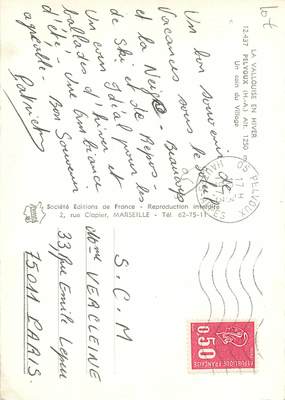 Lot
LA VALLOUISE EN HIVER
12-437 PELVOUX (H.-A.) Alt. 1250 m
Un coin du Village
Un bon souvenir de
Vacances sous le soleil
et la Neige - Beaucoup
de Ski et de Repos -
Un coin Idéal pour les
ballades d'hiver et
d'été - Une
Bon Souvenir
Patrick
05 PELVOUX
17 H
Société Editions de France - Reproduction interdite
2, rue Clapier, MARSEILLE - Tél. 62-75-11
S.C.M
Mme VERCLEINE
33 Rue Emile Lepeu
75011 PARIS.
0,50
REPUBLIQUE FRANÇAISE